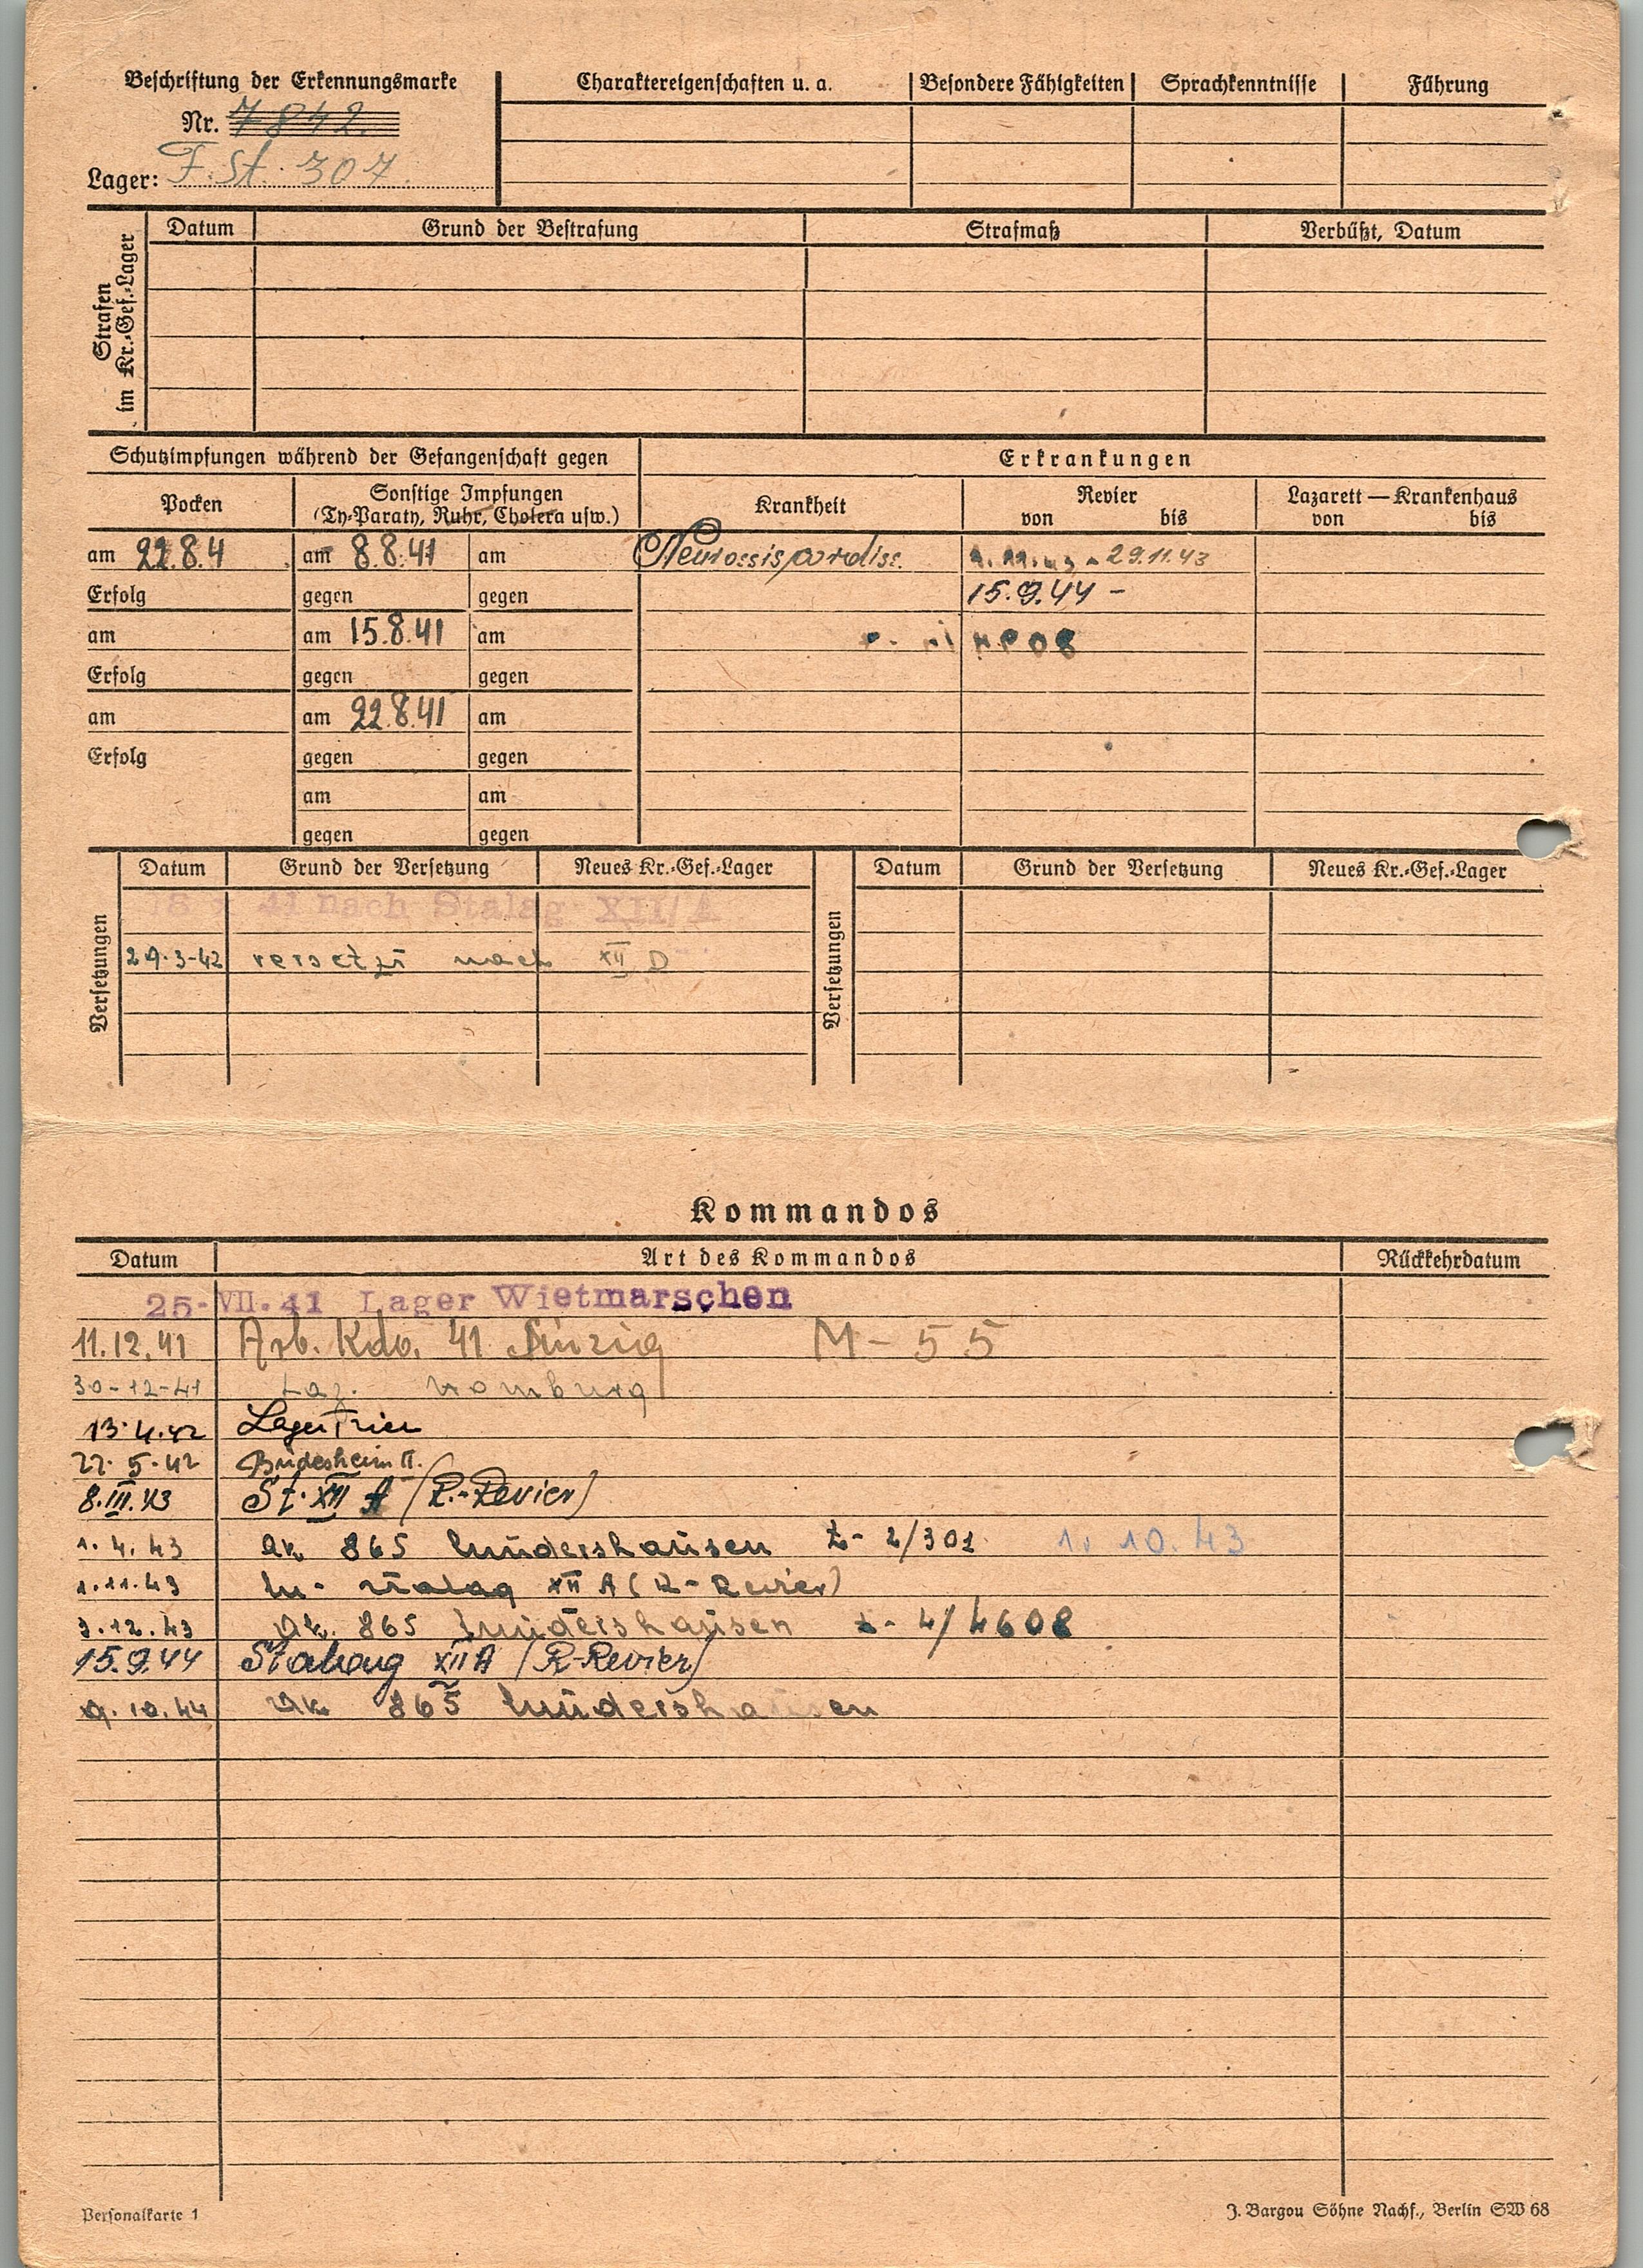 Beschriftung der Erkennungsmarke
Nr. 7842.
Lager: F. St. 307.
Charaktereigenschaften u. a. Besondere Fähigkeiten Sprachkenntnisse Führung
Strafen im Kr.-Gef.-Lager
Datum Grund der Bestrafung Strafmaß Verbüßt, Datum
Schutzimpfungen während der Gefangenschaft gegen Erkrankungen
Pocken Sonstige Impfungen (Ty-Paraty, Ruhr, Cholera usw.) Krankheit Revier von bis Lazarett — Krankenhaus von bis
am 22.8.4 am 8.8.41 am 29.11.43
Erfolg gegen gegen 15.9.44 -
am am 15.8.41 am
Erfolg gegen gegen
am am 22.8.41 am
Erfolg gegen gegen
am am
gegen gegen
Versetzungen Datum Grund der Versetzung Neues Kr.-Gef.-Lager Versetzungen Datum Grund der Versetzung Neues Kr.-Gef.-Lager
41 nach Stalag XII/A
29.3-42 versetzt nach XII D
Kommandos
Datum Art des Kommandos Rückkehrdatum
25. VII. 41 Lager Wietmarschen
11.12.41 Arb. Kdo. 41 Sinzig M - 55
30-12-41 Laz. Homburg
13.4.42 Lager Trier
22.5.42 Büdesheim II.
8.III.43 St. XII A (R.-Revier)
1.4.43 Ak 865 Hundershausen t- 2/301 1. 10. 43
1.11.43 Stalag XII A (R-Revier)
3.12.43 Ak. 865 Hundershausen t- 4/4608
15.9.44 Stalag XII A (R-Revier)
9.10.44 Ak 865 Hundershausen
Personalkarte 1
J. Bargou Söhne Nachf., Berlin SW 68